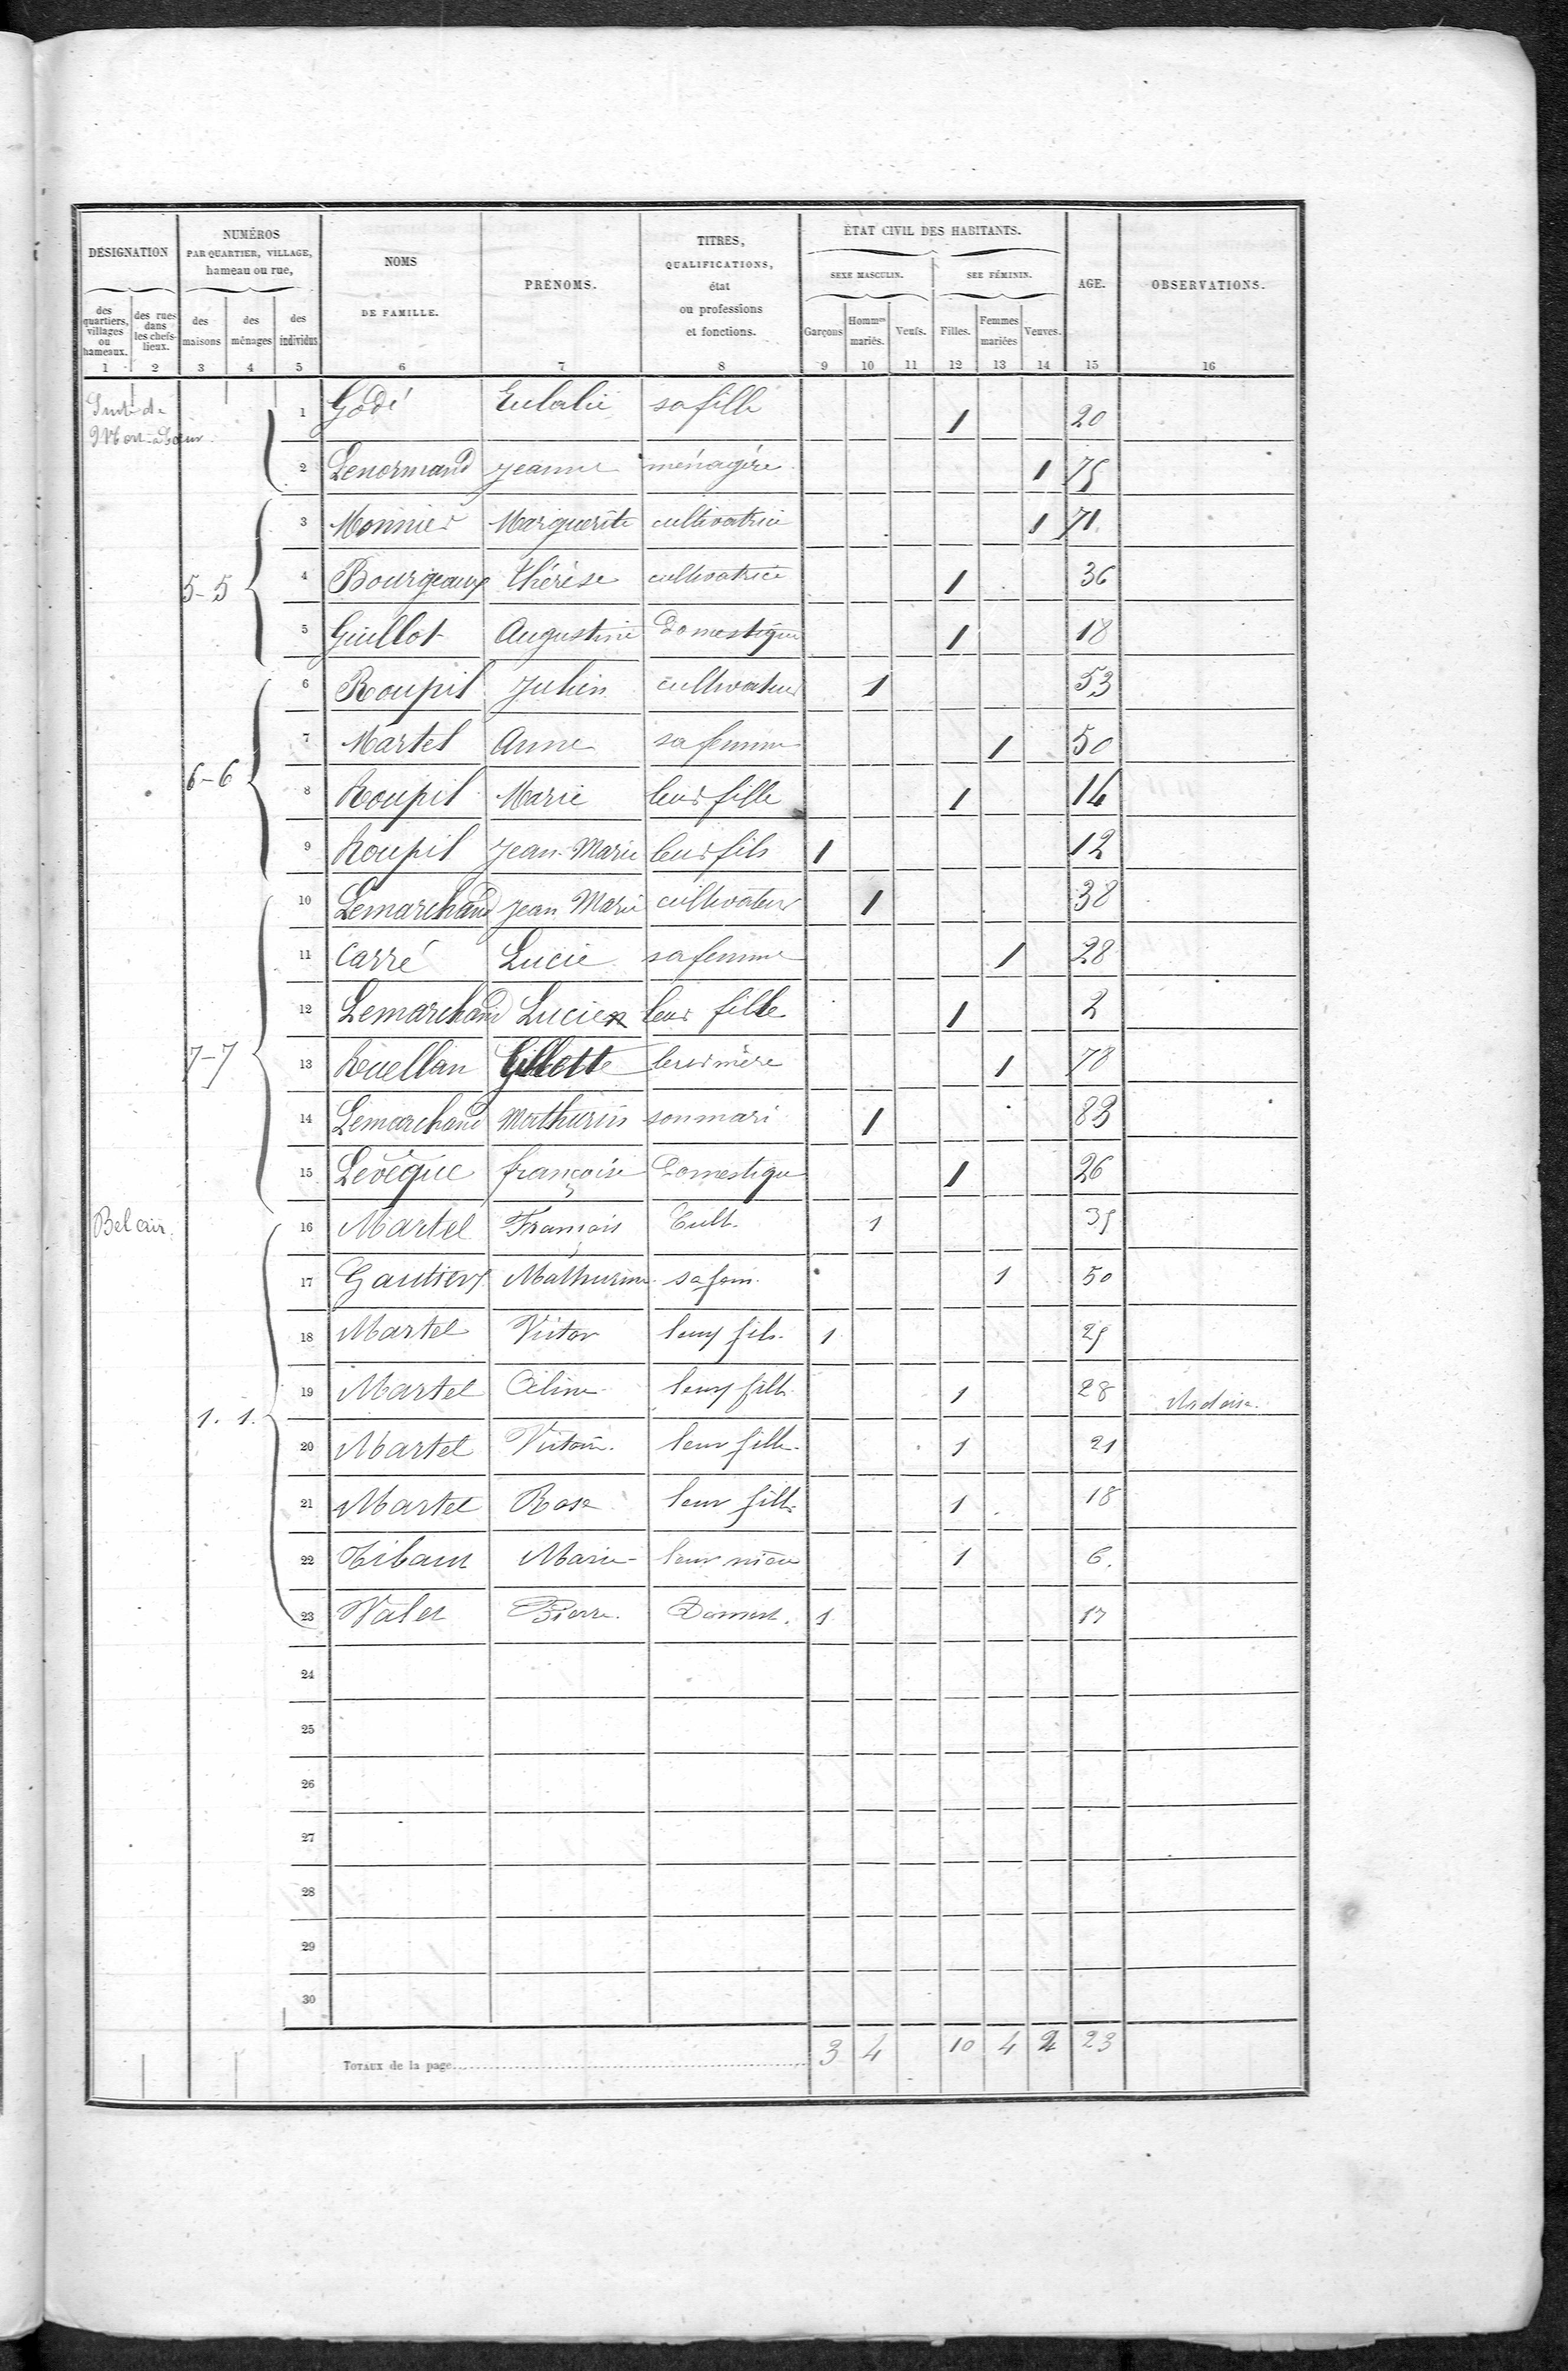 DÉSIGNATION
des quartiers, villages ou hameaux.
des rues dans les chefs-lieux.
NUMÉROS
PAR QUARTIER, VILLAGE,
hameau ou rue,
des maisons
des ménages
des individus
NOMS
DE FAMILLE.
PRÉNOMS.
TITRES,
QUALIFICATIONS,
état
ou professions
et fonctions.
ÉTAT CIVIL DES HABITANTS.
SEXE MASCULIN.
SEE FÉMININ.
Garçons
Hommes mariés.
Veufs.
Filles.
Femmes mariées
Veuves.
AGE.
OBSERVATIONS.
1 2 3 4 5 6 7 8 9 10 11 12 13 14 15 16
Suite de
1 Godé Eulalie sa fille 1 20
2 Lenormand Jeanne ménagère 1 75
3 Monnier Marguerite cultivatrice 1 71
5-5 4 Bourgeaux thérèse cultivatrice 1 36
5 Guillot Augustine Domestique 1 18
6 Roupil Julien cultivateur 1 53
7 Martel Anne sa femme 1 50
6-6 8 Roupil Marie leur fille 1 14
9 Roupil Jean-Marie leur fils 1 12
10 Lemarchand Jean Marie cultivateur 1 38
11 Carré Lucie sa femme 1 28
12 Lemarchand Lucie leur fille 1 2
7-7 13 Ruellan Gillette leur mère 1 78
14 Lemarchand Mathurin son mari 1 83
15 Levêque françoise Domestique 1 26
Bel air. 16 Martel François Cult. 1 35
17 Gautier Mathurine sa fem. 1 50
18 Martel Victor leur fils. 1 25
19 Martel Céline leur fille 1 28
1. 1. 20 Martel leur fille 1 21
21 Martel Rose leur fille 1 18
22 Marie leur nièce 1 6.
23 Valet Pierre. Domest. 1 17
24
25
26
27
28
29
30
TOTAUX de la page 3 4 10 4 2 23